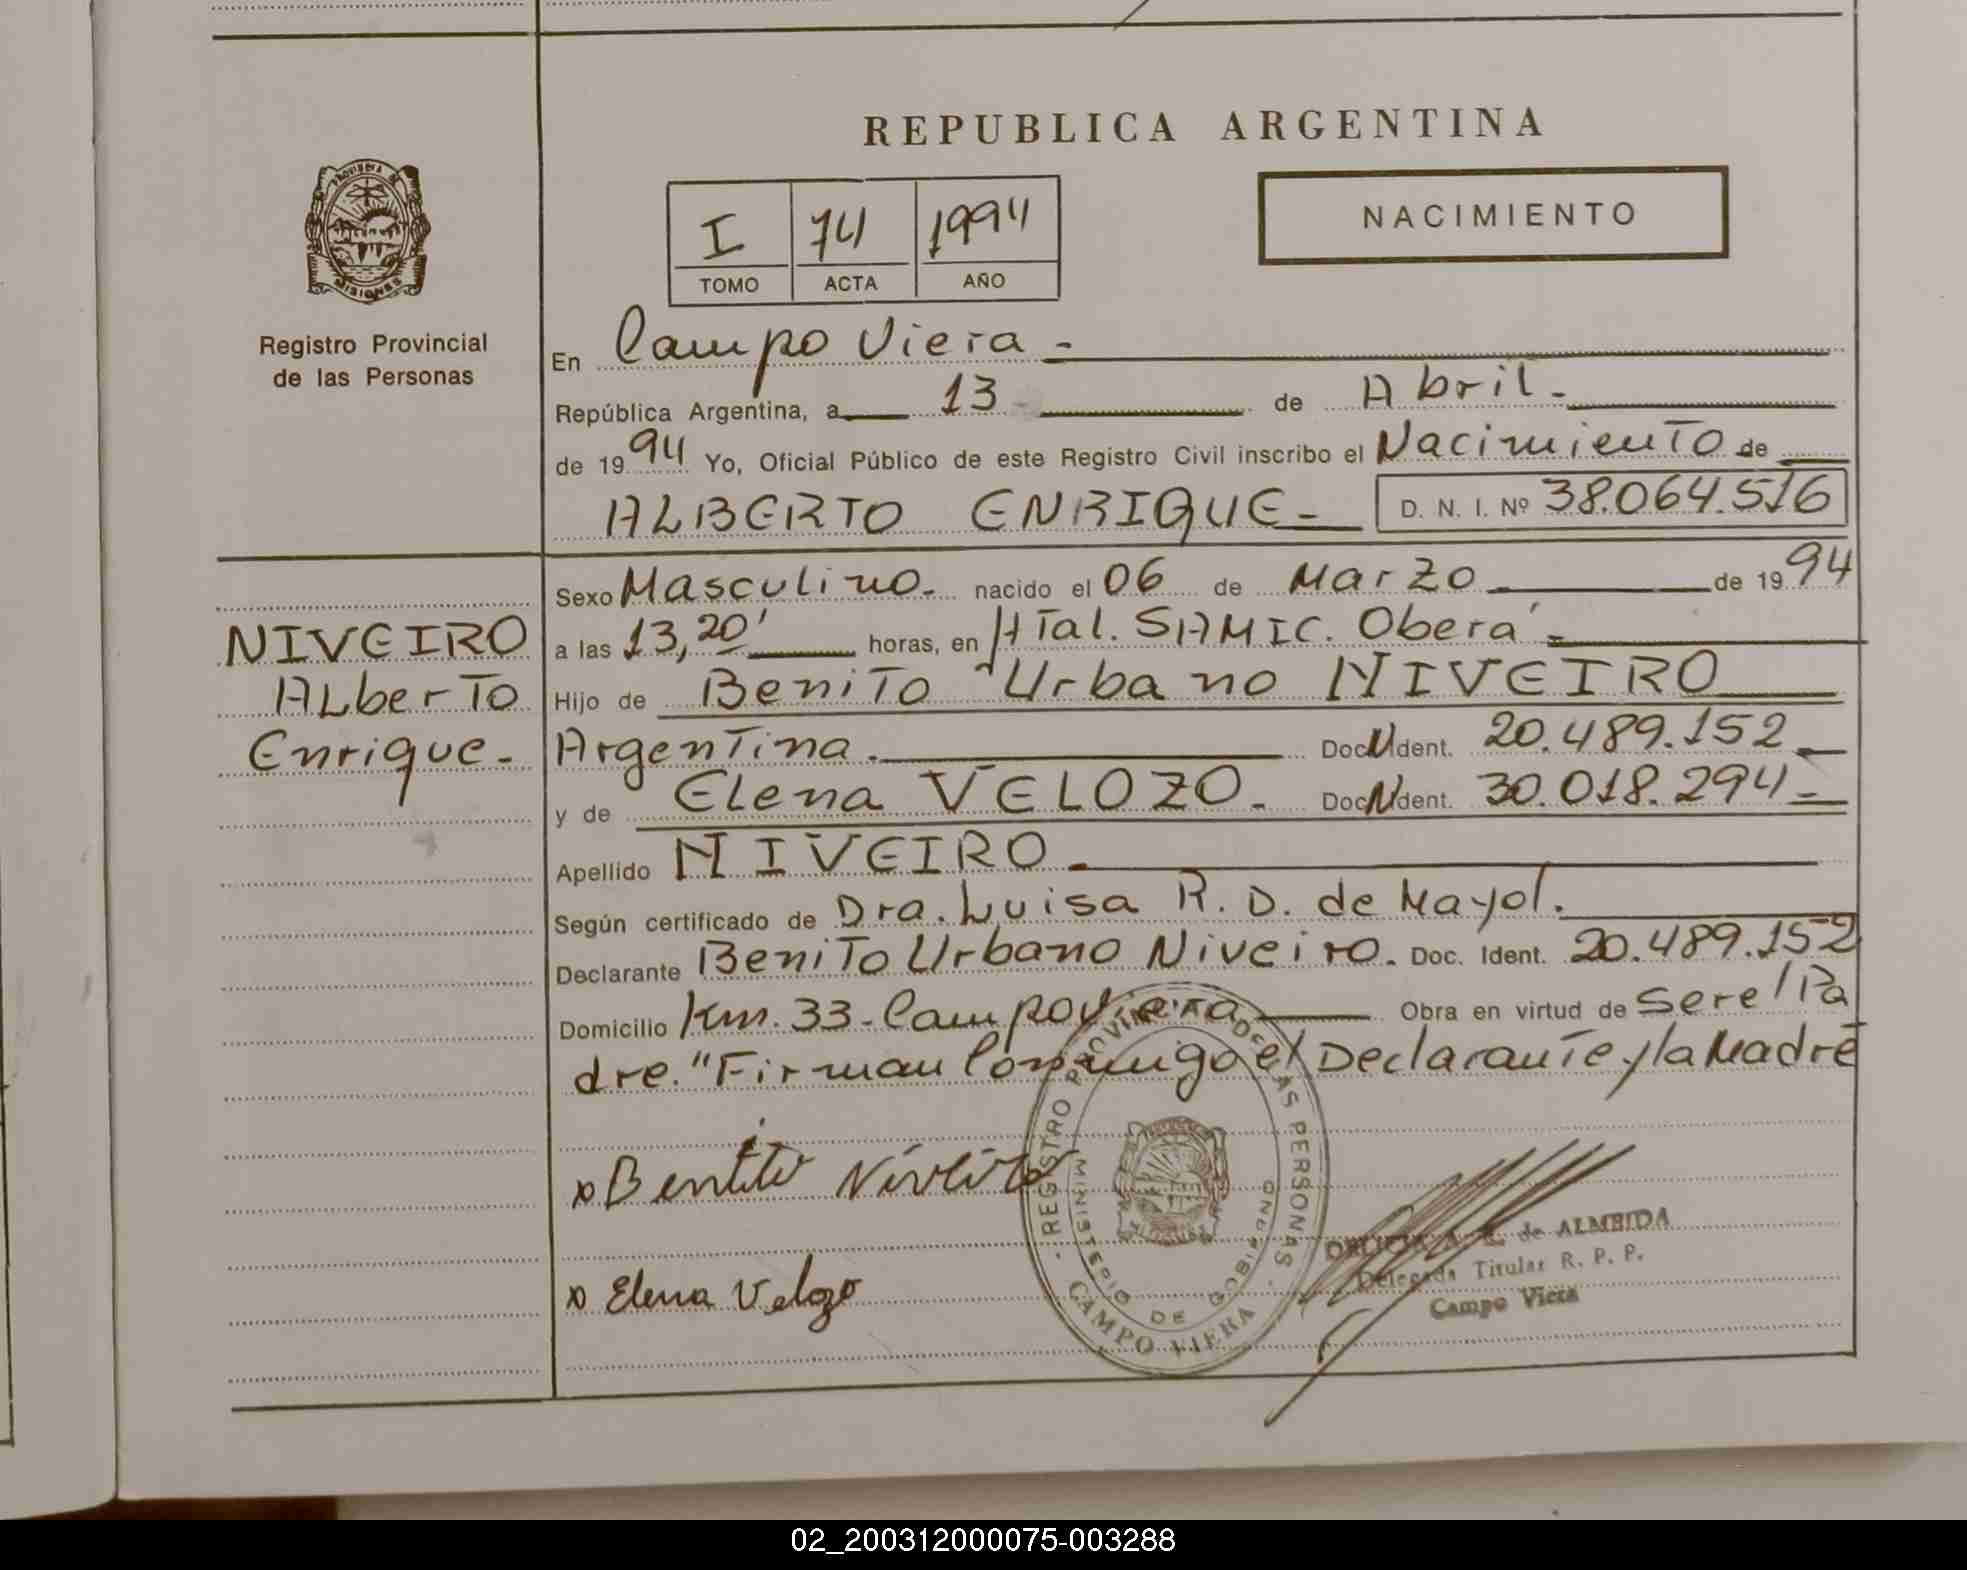 REPUBLICA ARGENTINA
PROVINCIA DE
MISIONES
Registro Provincial
de las Personas
I 74 1994
TOMO ACTA AÑO
NACIMIENTO
En Campo Viera -
República Argentina, a 13 de Abril.-
de 1994 Yo, Oficial Público de este Registro Civil inscribo el Nacimiento de
ALBERTO ENRIQUE- D. N. I. Nº 38.064.516
NIVEIRO
Alberto
Enrique-
Sexo Masculino.- nacido el 06 de Marzo de 1994
a las 13,20' horas, en HTal. SAMIC. Oberá -
Hijo de Benito Urbano NIVEIRO
Argentina. Doc. Ident. 20.489.152 -
y de Elena VELOZO.- Doc. Ident. 30.018.294 -
Apellido NIVEIRO.-
Según certificado de Dra. Luisa R. D. de Mayol.
Declarante Benito Urbano Niveiro. Doc. Ident. 20.489.152
Domicilio Km. 33 - Campo Viera Obra en virtud de Ser el Pa
dre." Firman Conmigo el Declarante y la Madre
x Benito Niveiro
x Elena Velozo
REGISTRO PROVINCIAL DE LAS PERSONAS
MINISTERIO DE GOBIERNO
CAMPO VIERA
de ALMEIDA
Delegada Titular R. P. P.
Campo Viera
02_200312000075-003288